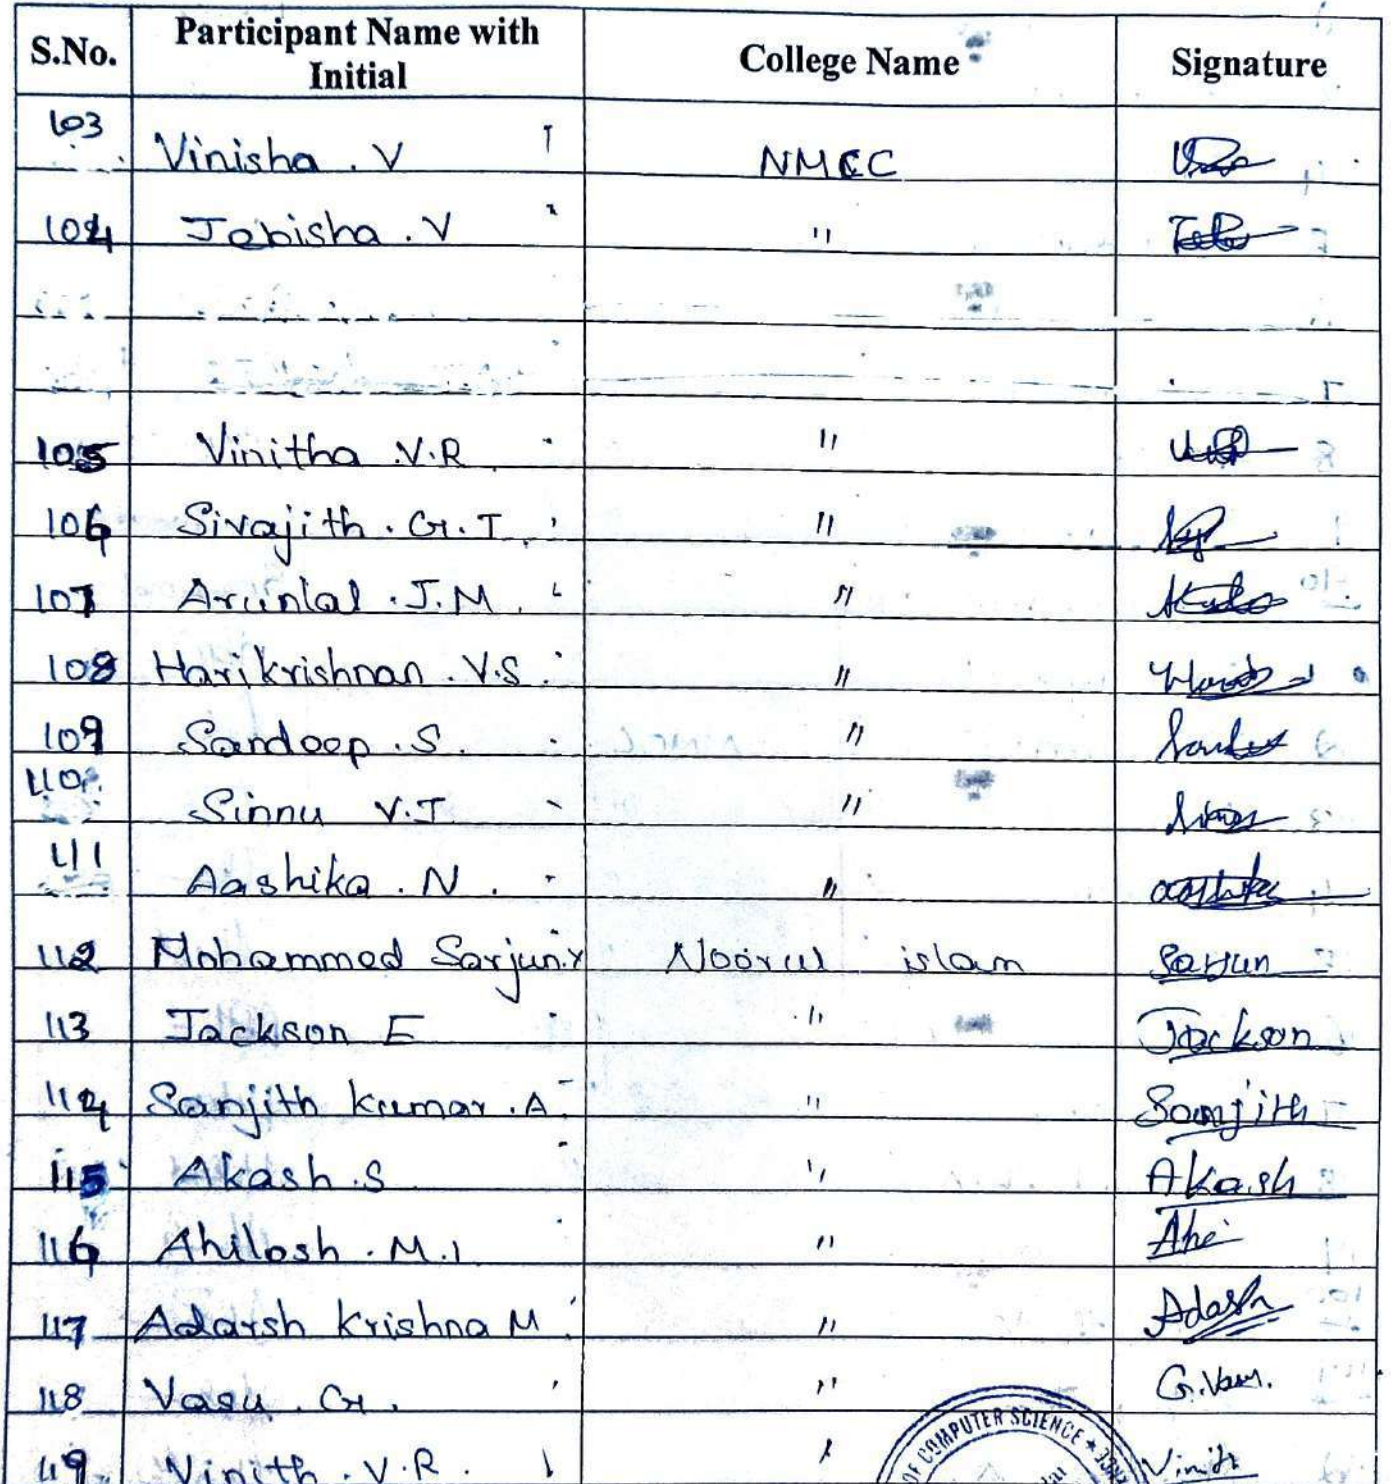 S.No. Participant Name with Initial College Name Signature
103 Vinisha . V NMCC
104 Jebisha . V "
105 Vinitha V.R "
106 Sivajith . G. T "
107 Arunlal . J. M. "
108 Harikrishnan . V.S "
109 Sandeep . S. "
110 Sinnu V.J "
111 Aashika . N . "
112 Mohammed Sarjun.Y Noorul islam Sarjun
113 Jackson E " Jackson
114 Sanjith kumar . A " Sanjith
115 Akash .S " Akash
116 Ahilosh . M. I "
117 Adarsh Krishna M " Adash
118 Vasu . G. " G.Vasu.
119 Vinith . V.R. "
OF COMPUTER SCIENCE ★